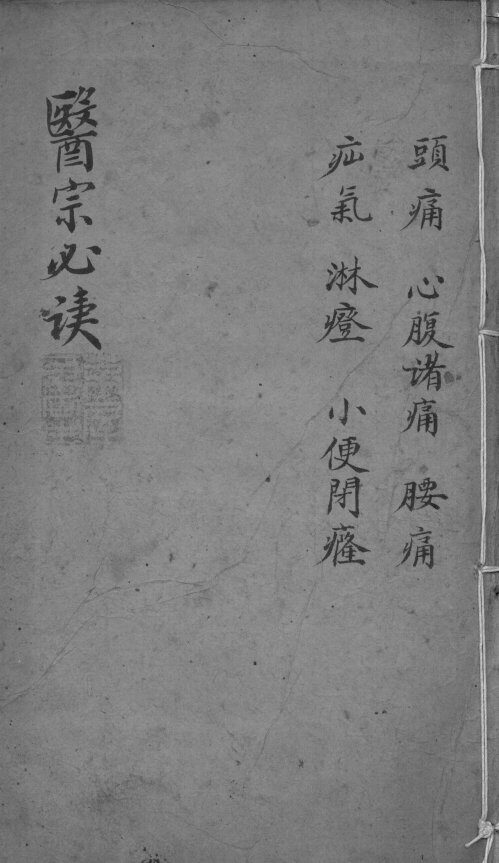 頭痛 心腹诸痛 腰痛
疝氣 淋證 小便閉癃
醫宗必读